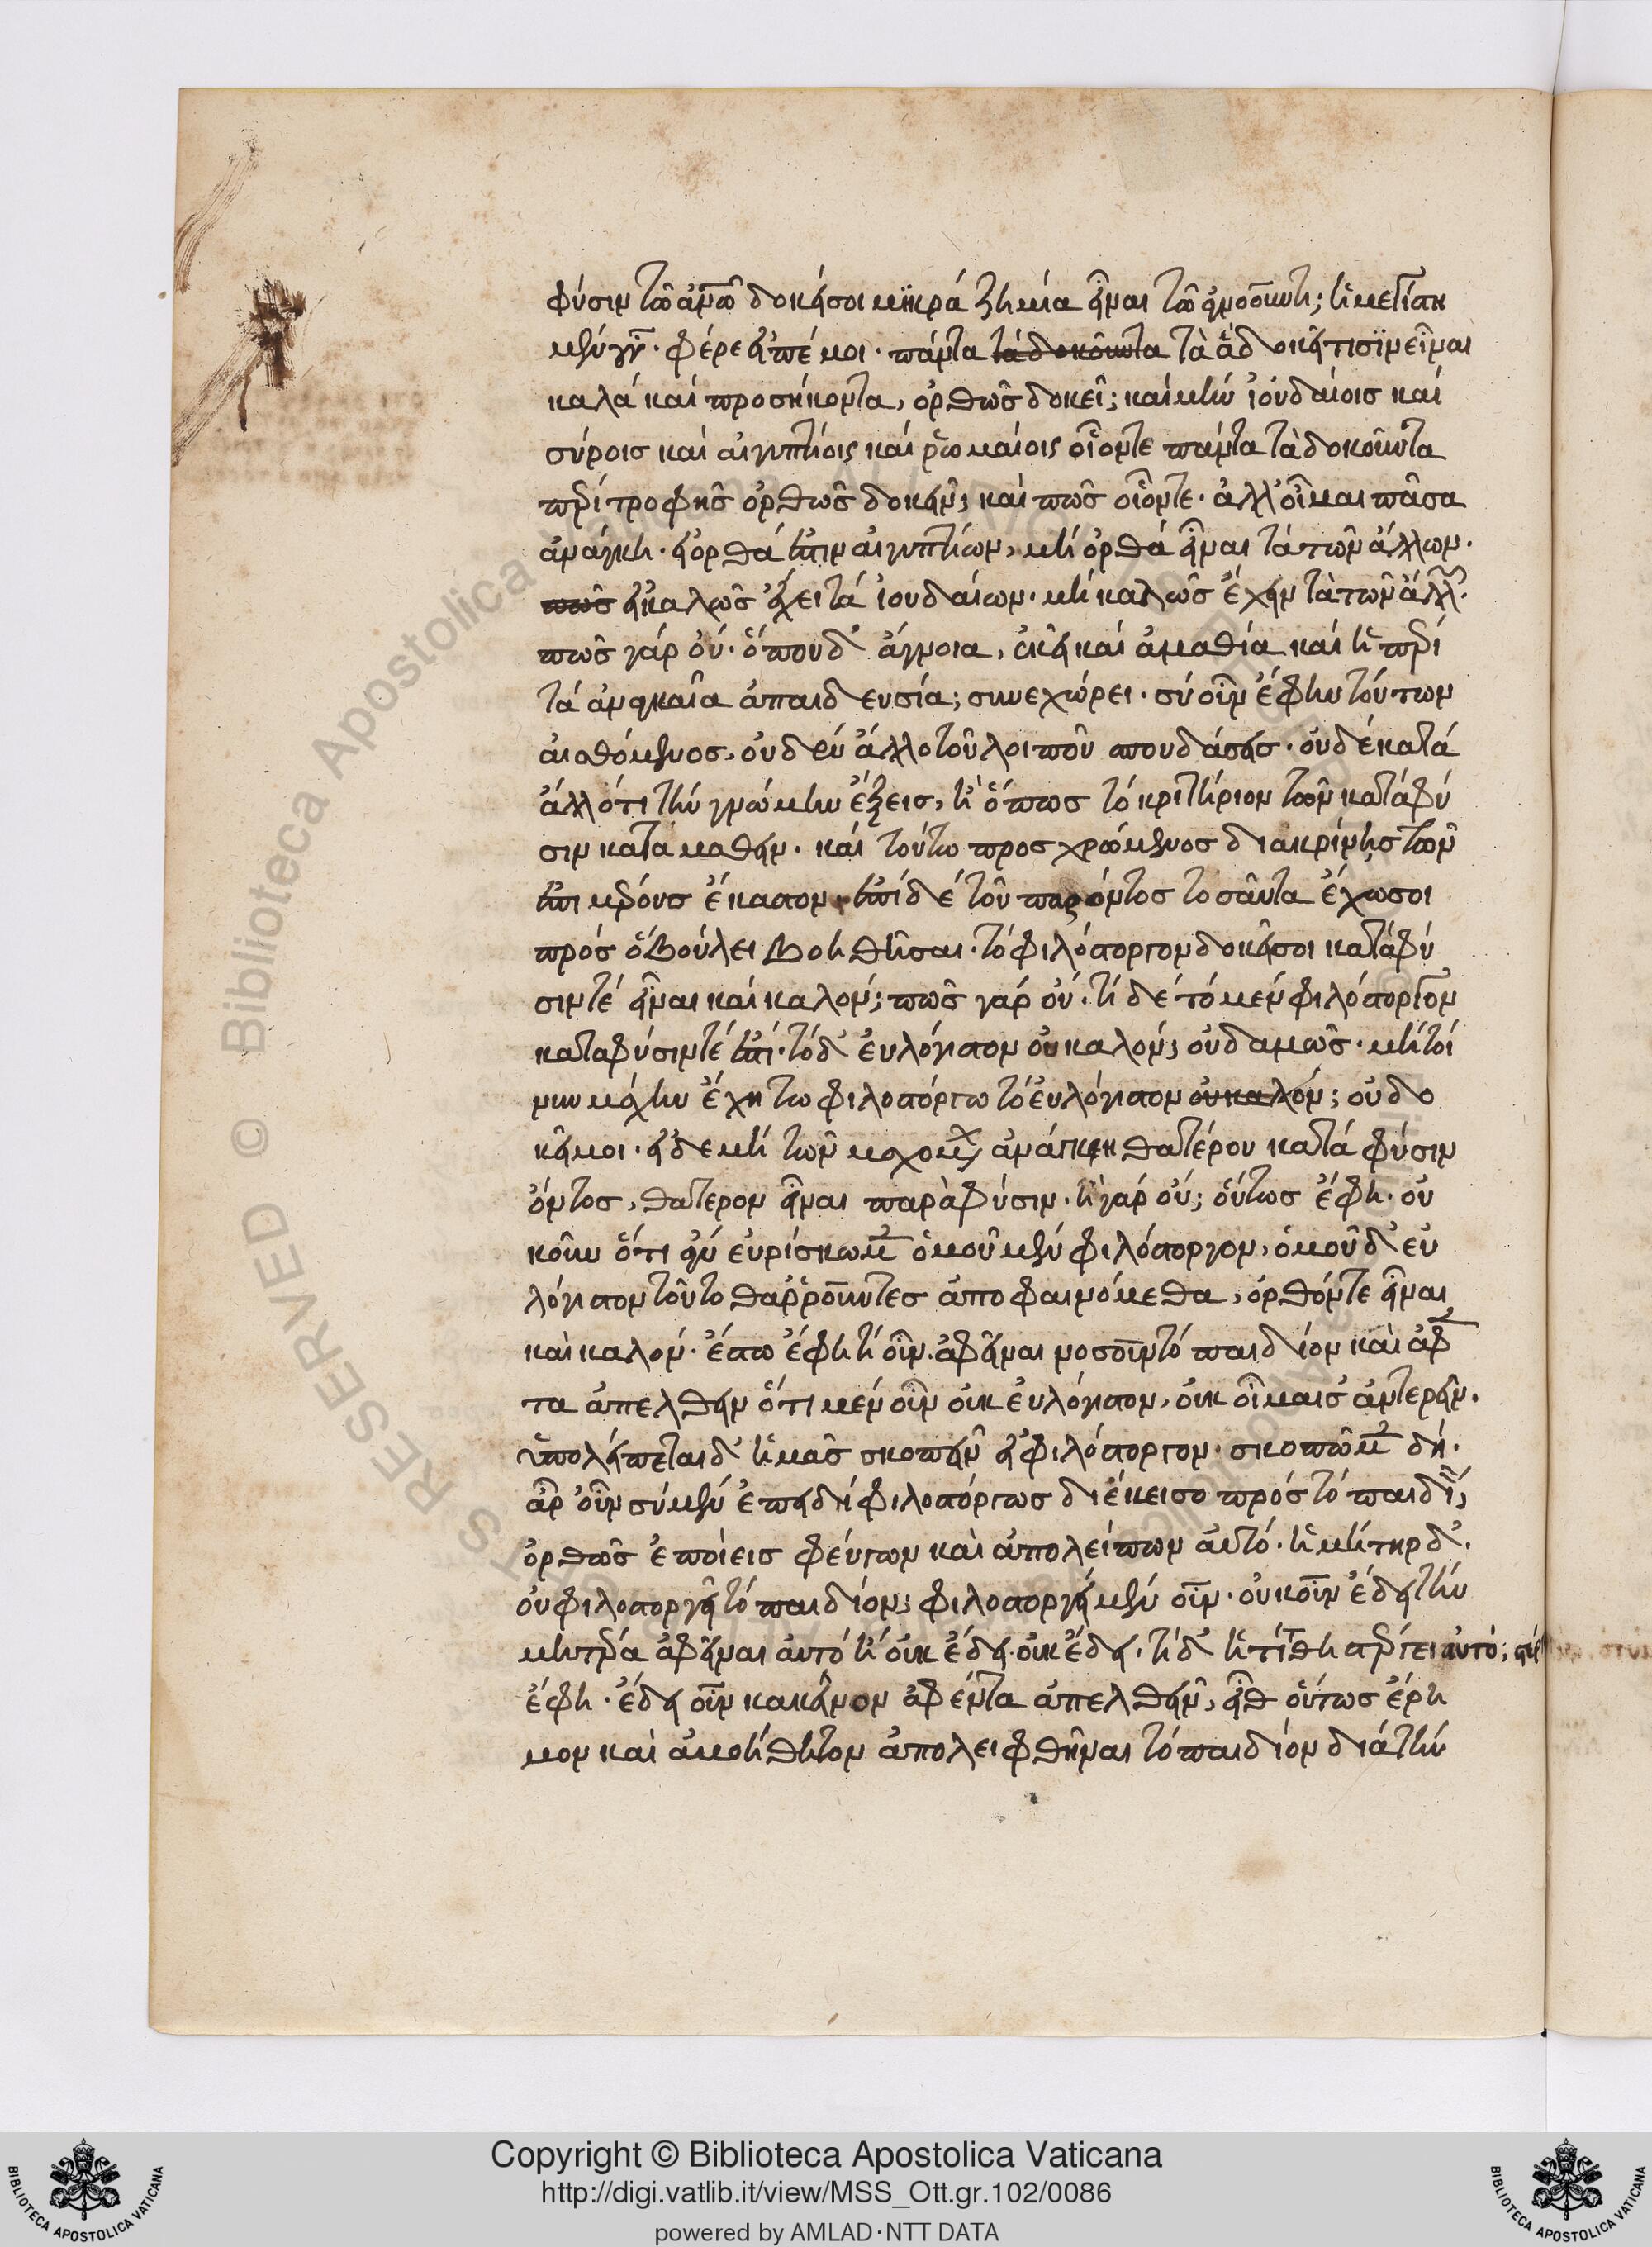 φύσιν τῶ ἀνῶ δοκεῖ σοι μϊκρά ζημία εἶναι τῶ ἀγνοοῦντι; ἡ μεγίστη
μὲν γὰρ. φέρε εἰπέ μοι. πάντα τὰ δοκοῦντα τὰ ἅ δοκεῖ τισϊν εἶναι
καλά καὶ προσήκοντα, ὀρθῶς δοκεῖ; καὶ μὴν ἰουδαίοις καὶ
σύροις καὶ αἰγυπτίοις καὶ ῥωμαίοις οἷόντε πάντα τὰ δοκοῦντα
περὶ τροφῆς ὀρθῶς δοκεῖν; καὶ πῶς οἷόντε. ἀλλ' οἶμαι πᾶσα
ἀνάγκη. εἰ ὀρθά ἐστιν αἰγυπτίων, μὴ ὀρθά εἶναι τὰ τῶν ἄλλων.
πῶς εἰ καλῶς ἔχει τὰ ἰουδαίων. μὴ καλῶς ἔχειν τὰ τῶν ἄλλ.
πῶς γὰρ οὔ. ὅπου δ' ἄγνοια, ἐκεῖ καὶ ἀμαθία καὶ ἡ περὶ
τὰ ἀναγκαῖα ἀπαιδευσία; συνεχώρει. σὺ οὖν ἔφην τούτων
αἰσθόμενος, οὐδὲν ἄλλο τοῦ λοιποῦ σπουδάσεις. οὐδὲ κατὰ
ἄλλό τι τὴν γνώμην ἕξεις, ἢ ὅπως τὸ κριτήριον τῶν κατὰ φύ
σιν καταμαθεῖν. καὶ τούτω προσχρώμενος διακρίνης τῶν
ἐπὶ μέρους ἕκαστον. ἐπὶ δὲ τοῦ παρόντος τοσαῦτα ἔχω σοι
πρὸς ὃ βούλει βοηθῆσαι. τὸ φιλόστοργον δοκεῖ σοι κατὰ φύ
σιν τέ εἶναι καὶ καλόν; πῶς γὰρ οὔ. τί δέ τὸ μὲν φιλόστοργον
κατὰ φύσιν τέ ἐστι. τὸ δ' εὐλόγιστον οὐ καλόν; οὐδαμῶς. μὴ τοί
νυν μάχην ἔχη τω φιλοστόργω τὸ εὐλόγιστον οὐ καλόν; οὐ δο
κεῖ μοι. εἰ δὲ μὴ τῶν μαχομ ἀνάγκη θατέρου κατὰ φύσιν
ὄντος, θάτερον εἶναι παρὰ φύσιν. ἢ γὰρ οὔ; οὕτως ἔφη. οὐ
κοῦν ὅτι ἂν εὑρίσκωμ ὁμοῦ μὲν φιλόστοργον, ὁμοῦ δ' εὐ
λόγιστον τοῦτο θαῤῥοῦντες ἀποφαινόμεθα, ὀρθόν τε εἶναι
καὶ καλόν. ἔστω ἔφη τί οὖν. ἀφεῖναι νοσοῦν τὸ παιδίον καὶ ἀφέν
τα ἀπελθεῖν ὅτι μὲν οὖν οὐκ εὐλόγιστον, οὐκ οἶμαι σ' ἀντερεῖν.
ὑπολείπεται δ' ἡμᾶς σκοπεῖν εἰ φιλόστοργον. σκοπῶμ δή.
ἆρ' οὖν σὺ μὲν ἐπειδὴ φιλοστόργως διέκεισο πρὸς τὸ παιδί,
ὀρθῶς ἐποίεις φεύγων καὶ ἀπολείπων αὐτό. ἡ μήτηρ δ'.
οὐ φιλοστοργεῖ τὸ παιδίον; φιλοστοργεῖ μὲν οὖν. οὐκοῦν ἔδει τὴν
μητέρα ἀφεῖναι αὐτό ἢ οὐκ ἔδει. οὐκ ἔδει. τί δ' ἡ τίτθη στέργει αὐτό;
ἔφη. ἔδει οὖν κακεῖνον ἀφέντα ἀπελθεῖν, εἶθ οὕτως ἔρη
μον καὶ ἀβοήθητον ἀπολειφθῆναι τὸ παιδίον διὰ τὴν
Copyright © Biblioteca Apostolica Vaticana
http://digi.vatlib.it/view/MSS_Ott.gr.102/0086
powered by AMLAD·NTT DATA